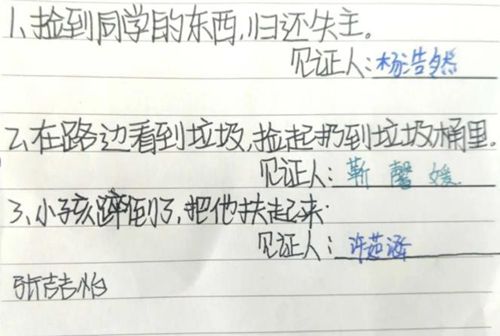 1、捡到同学的东西,归还失主。
见证人:杨浩然
2、在路边看到垃圾,捡起扔到垃圾桶里。
见证人:靳馨媛
3、小孩蹿倒了,把他扶起来.
见证人:许茹涵
张喆怡